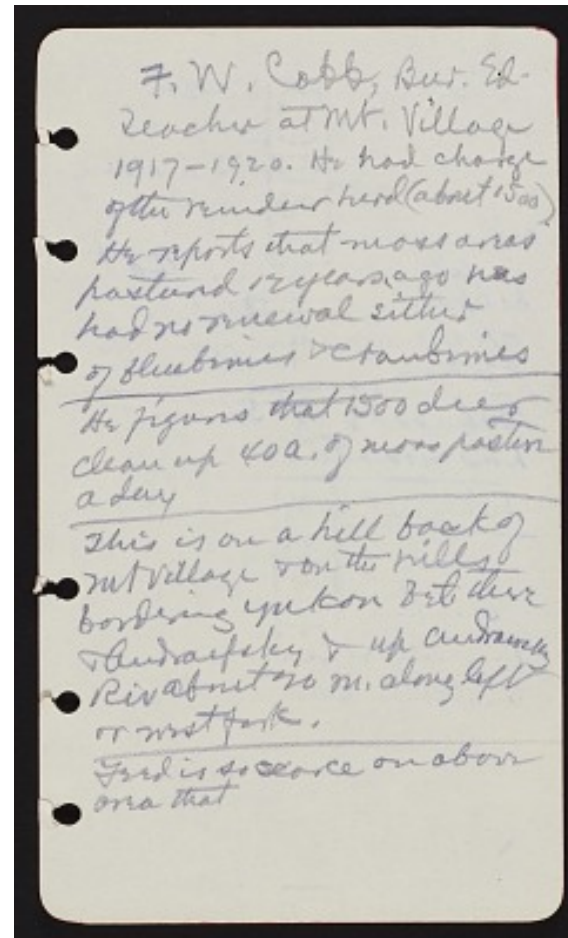 F. W. Cobb, Bur. Ed.
Teacher at Mt. Village
1917-1920. He had charge
of the reindeer herd (about 1500)
He reports that moss areas
pastured 12 years ago has
had no renewal either
of blueberries & cranberries
He figures that 1500 deer
clean up 40 a. of moss pasture
a day
This is on a hill back of
Mt Village & on the hills
bordering Yukon bet there
& Andraefsky & up Andraefsky
Riv about 20 m. along left
or west fork.
Feed is so scarce on above
area that